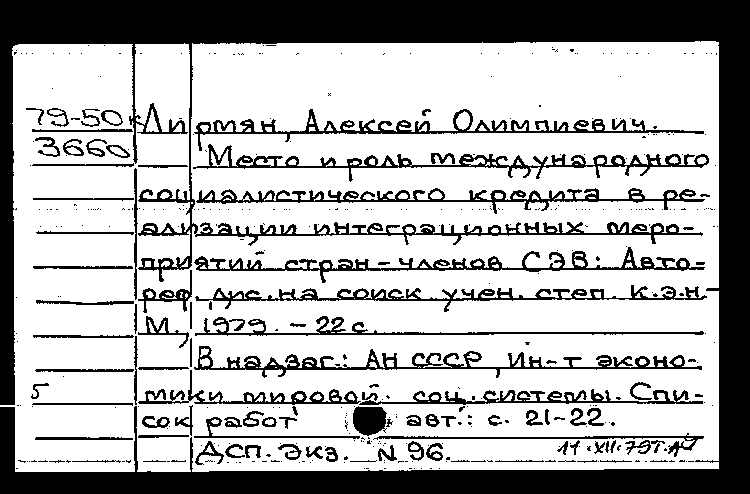 79-50к Лирмян, Алексей Олимпиевич.
3660 Место и роль международного
социалистического кредита в ре-
ализации интеграционных меро-
приятий стран-членов СЭВ: Авто-
реф. дис. на соиск учен. степ. к.э.н.-
М., 1979. - 22 с.
В надзаг.: АН СССР, Ин-т эконо-
5 мики мировой соц. системы. Спи-
сок работ авт.: с. 21-22.
ДСП. Экз. N 96.